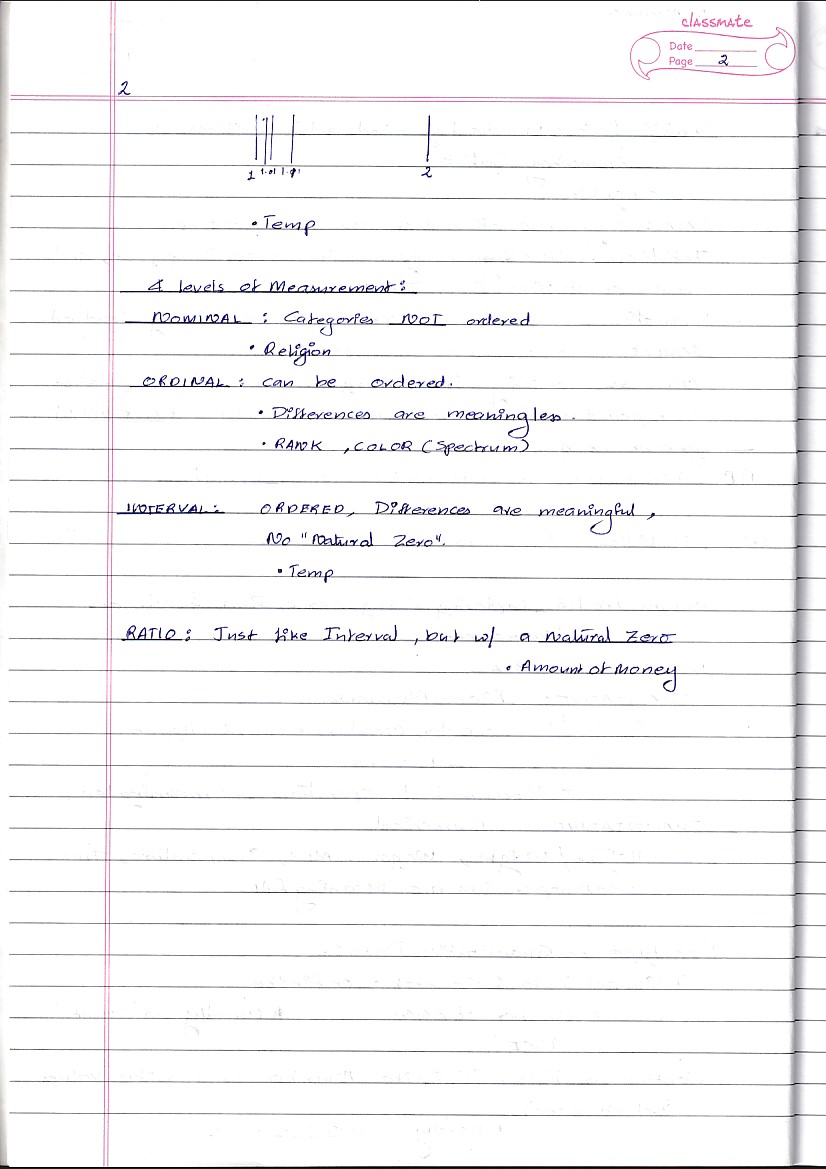 classmate
Date
Page 2
2
1 1.01 2
• Temp
4 levels of Measurement:
NOMINAL : Categories NOT ordered
• Religion
ORDINAL : can be ordered.
• Differences are meaningless.
• RANK , COLOR (Spectrum)
INTERVAL: ORDERED, Differences are meaningful,
No "Natural Zero".
• Temp
RATIO : Just like Interval , but w/ a Natural Zero
• Amount of Money